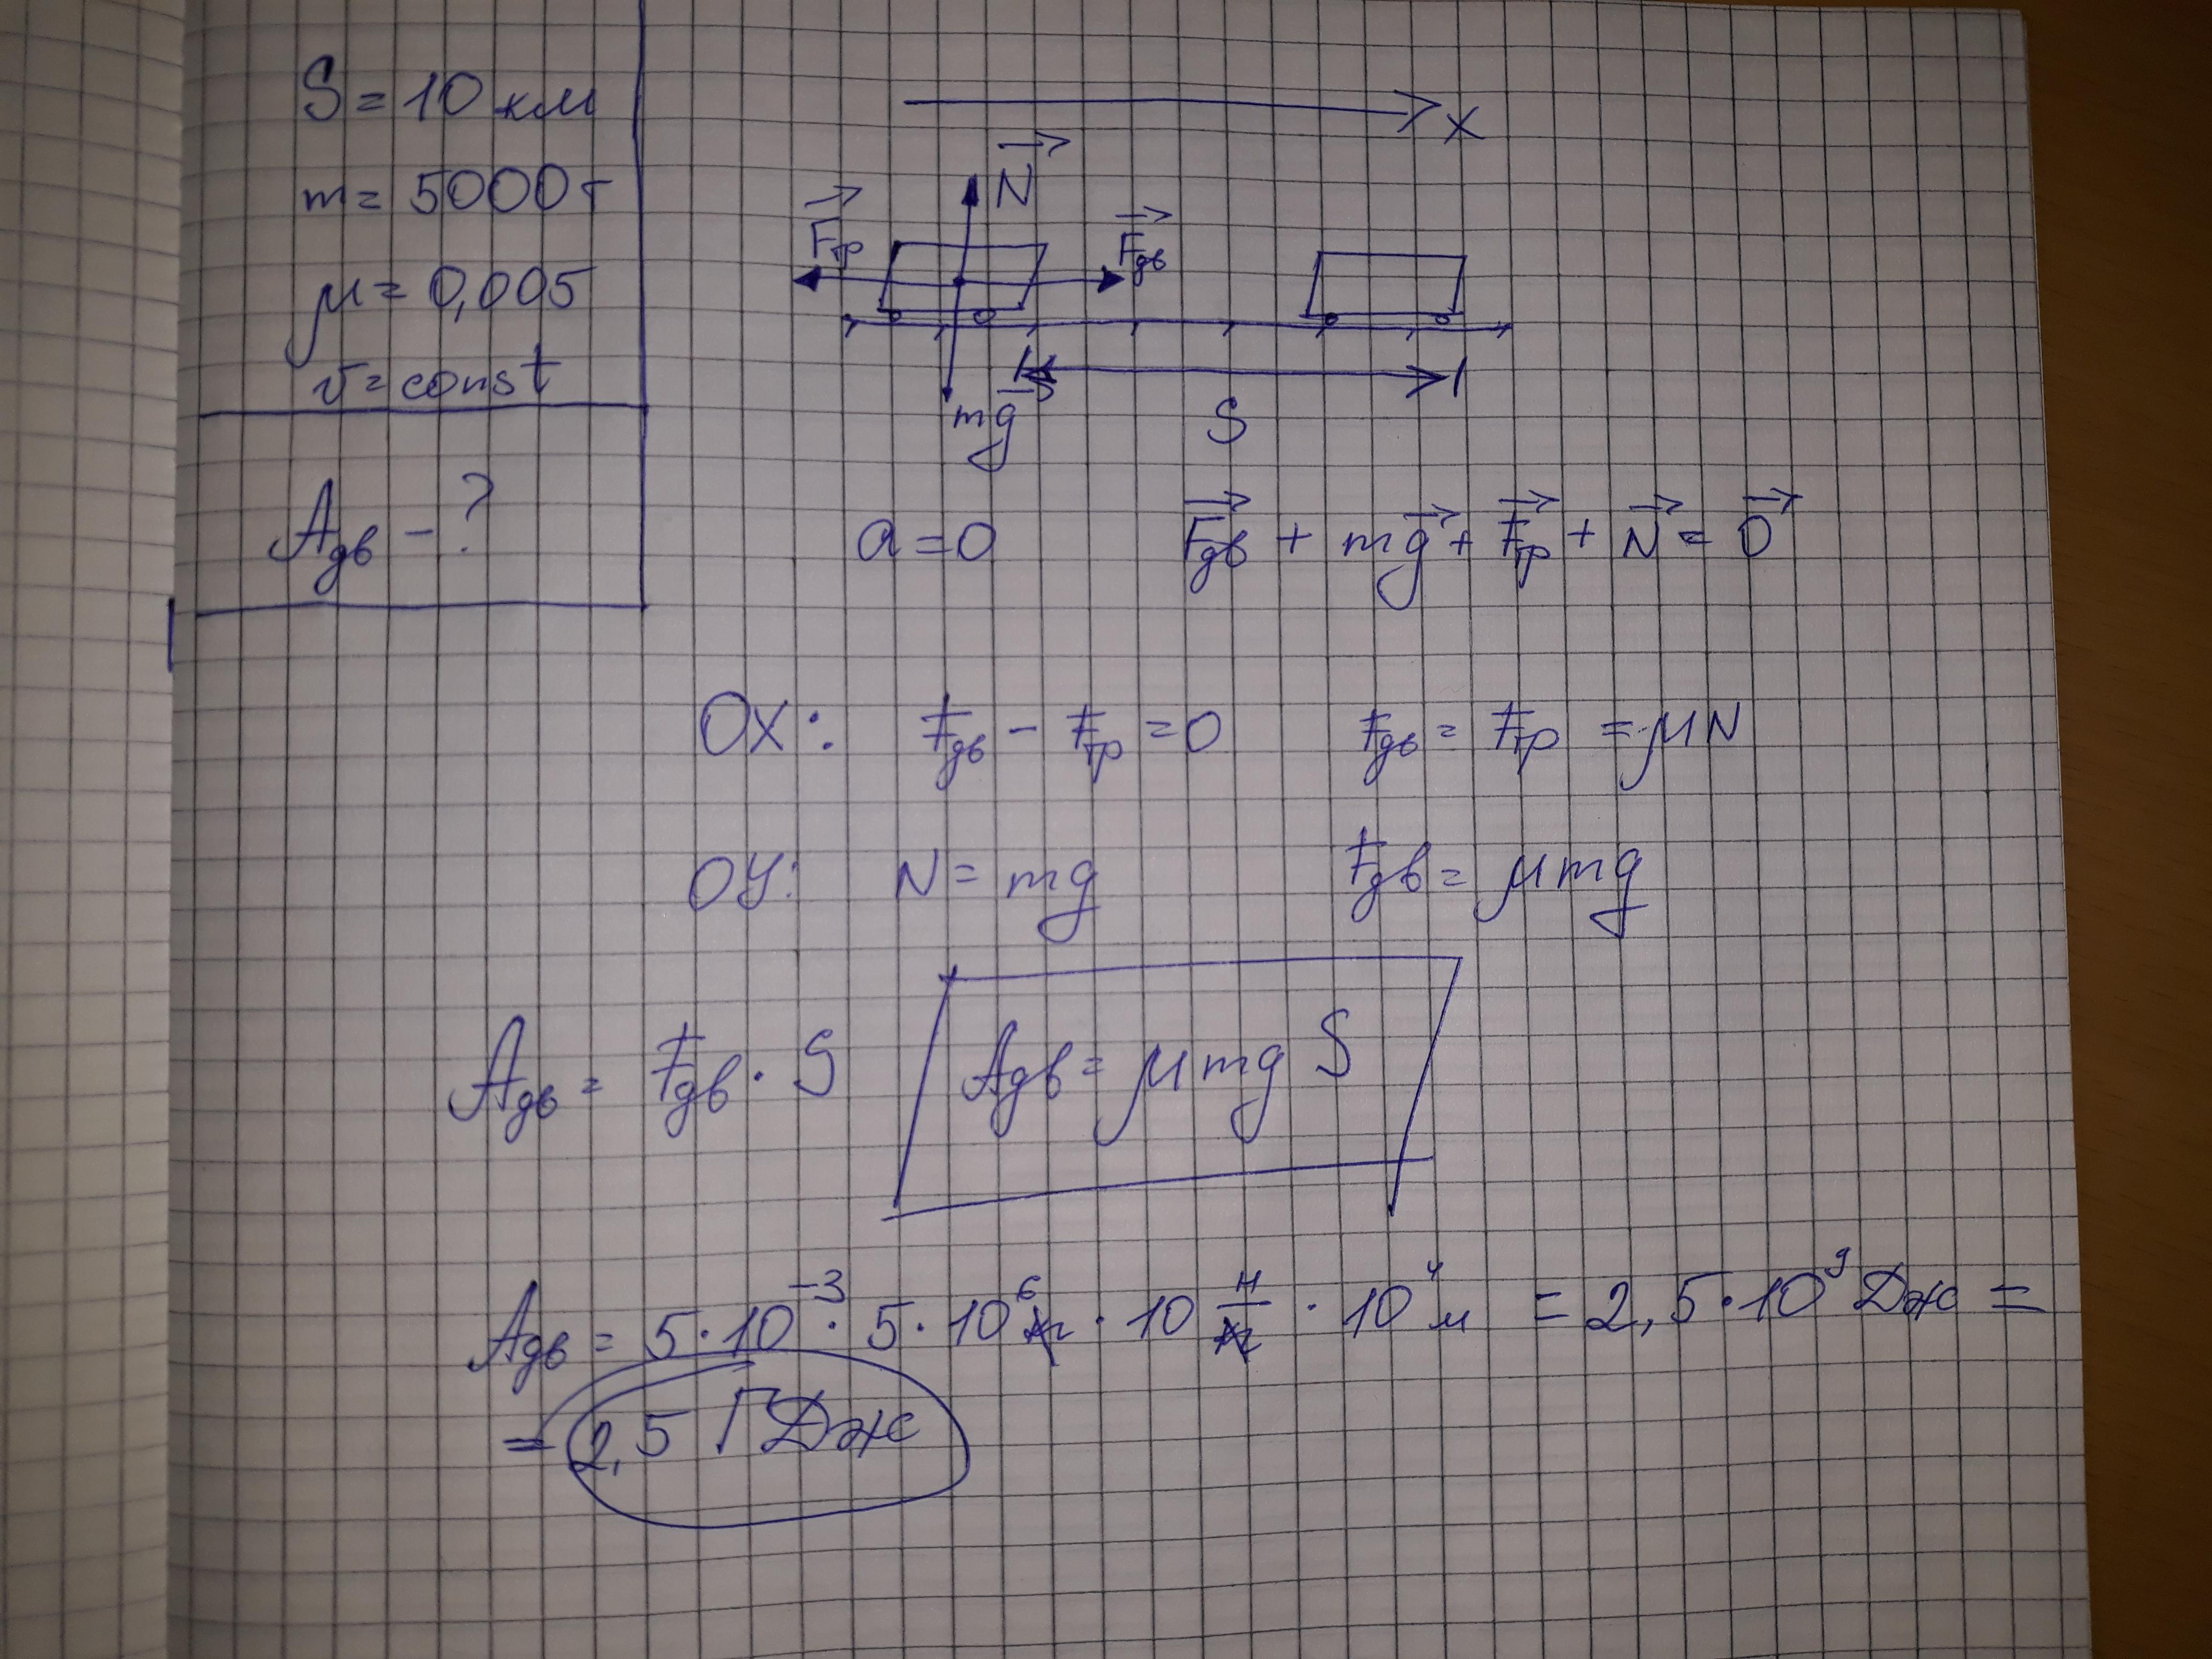 S = 10 км
m = 5000 т
μ = 0,005
v = const
Aдв - ?
x
N⃗
F⃗тр
F⃗дв
mg⃗
S
a = 0 F⃗дв + mg⃗ + F⃗тр + N⃗ = 0⃗
OX: Fдв - Fтр = 0 Fдв = Fтр = μN
OY: N = mg Fдв = μmg
Aдв = Fдв · S Aдв = μmg S
Aдв = 5·10⁻³ · 5·10⁶ кг · 10 Н/кг · 10⁴ м = 2,5·10⁹ Дж =
= 2,5 ГДж